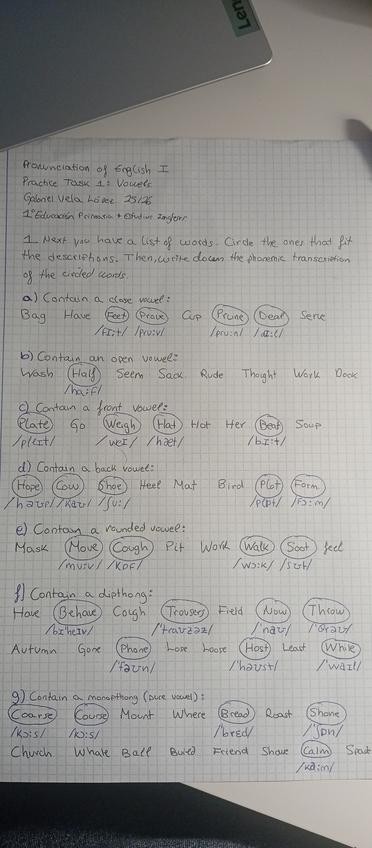 Len
Pronunciation of English I
Practice Task 1: Vowels
Gabriel Vela López 25/26
1º Educación Primaria + Estudios Ingleses
1. Next you have a list of words. Circle the ones that fit
the descriptions. Then, write down the phonemic transcription
of the circled words.
a) Contain a close vowel:
Bag Have Feet Prove Cup Prune Deal Serve
/fi:t/ /pru:v/ /pru:n/ /di:l/
b) Contain an open vowel:
Wash Half Seem Sack Rude Thought Work Dock
/ha:f/
c) Contain a front vowel:
Plate Go Weigh Hat Hot Her Beat Soup
/pleɪt/ /weɪ/ /hæt/ /bɪ:t/
d) Contain a back vowel:
Hope Cow Shoe Heel Mat Bird Plot Form
/həʊp/ /kaʊ/ /ʃu:/ /plɒt/ /fɔ:m/
e) Contain a rounded vowel:
Mask Move Cough Pit Work Walk Soot feel
/mu:v/ /kɒf/ /wɔ:k/ /sʊt/
f) Contain a dipthong:
Have Behave Cough Trousers Field Now Throw
/bɪ'heɪv/ /'traʊzəz/ /'naʊ/ /'θrəʊ/
Autumn Gone Phone Lose Loose Host Least While
/'fəʊn/ /'həʊst/ /'waɪl/
g) Contain a monopthong (pure vowel):
Coarse Course Mount Where Bread Roast Shone
/kɔ:s/ /kɔ:s/ /'bred/ /'ʃɒn/
Church Whale Ball Build Friend Shove Calm
/ka:m/